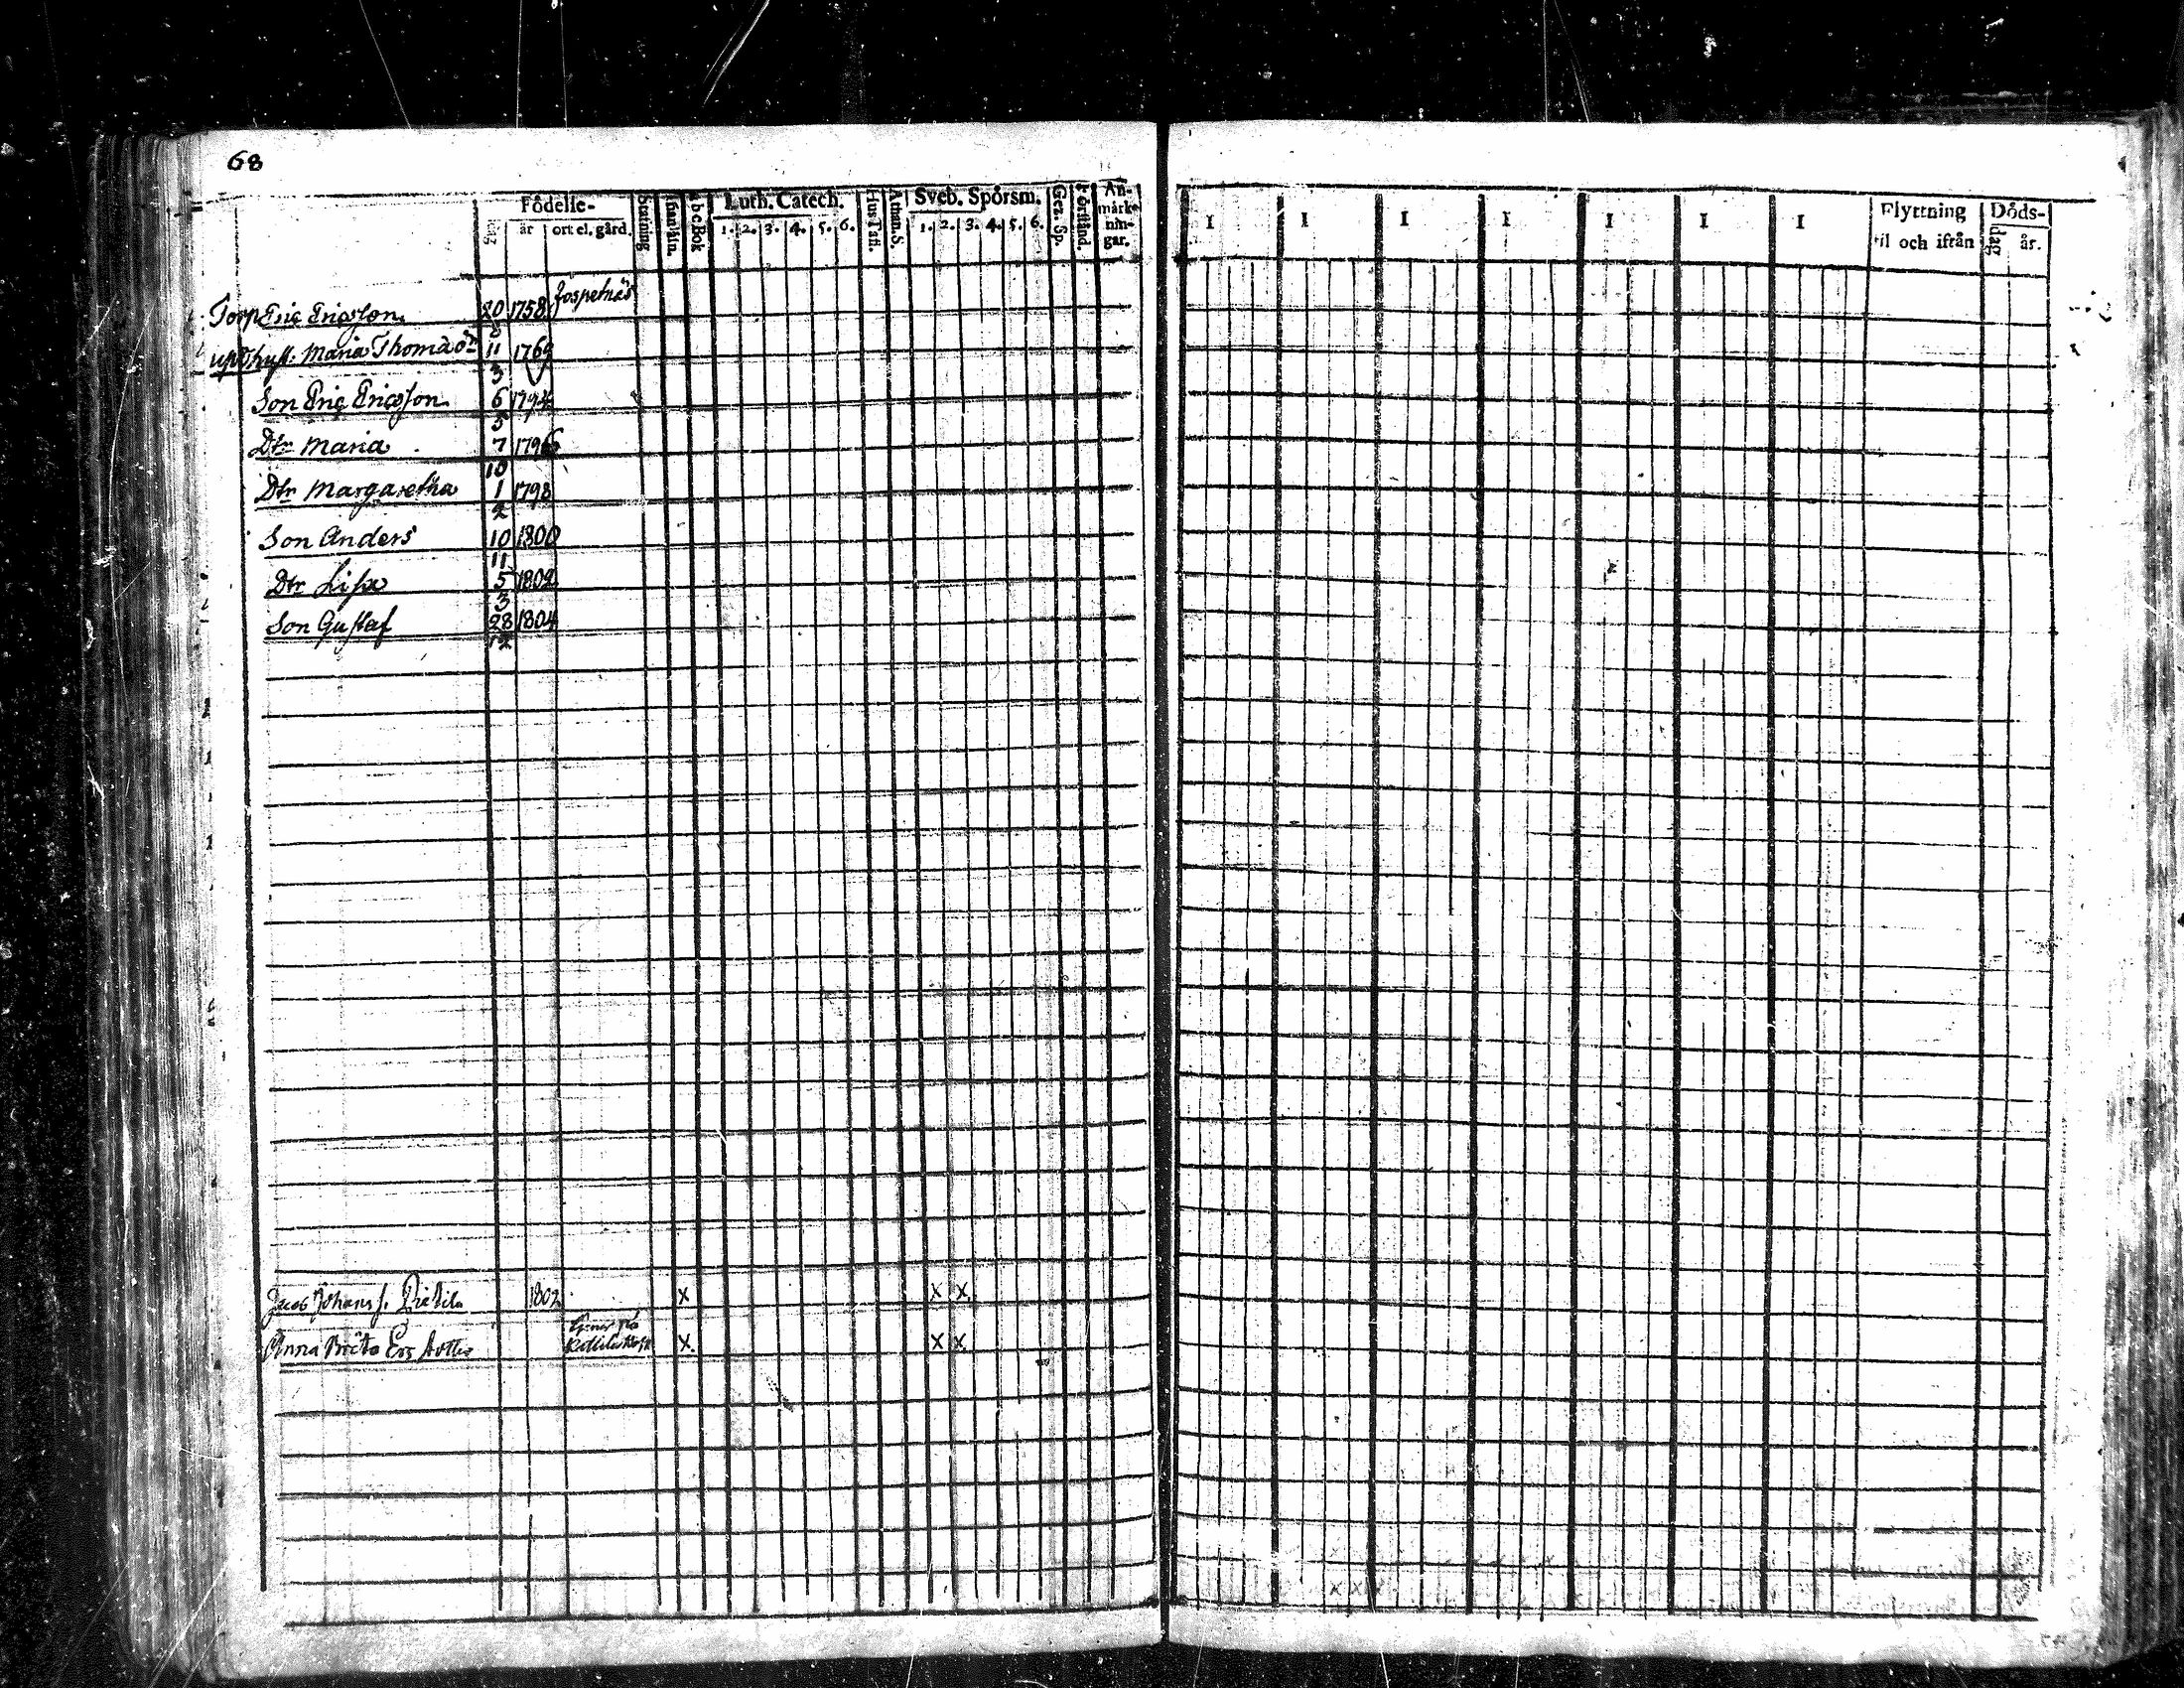 68
Födelse-
dag
år
ort el. gård.
abc Bok
Luth. Catech.
1. 2. 3. 4. 5. 6.
Hus Tafl.
Athan. S.
Sveb. Spörsm.
1. 2. 3. 4. 5. 6.
Gez. Sp.
Förstånd.
An-
märk-
nin-
gar.
I I I I I I I
Flyttning
til och ifrån
Döds-
dag
år.
Torp Eric Ericsson 20 1758
8
Maria Thomæ 11
3
Son Eric Ericsson 6 1794
5
Dtr Maria 7 1796
10
Dtr Margaretha 1 1798
2
Son Anders 10 1800
11
Dtr Lisa 5 1802
3
Son Gustaf 28 1804
12
Jacob Johans s. 1802 x x x
Anna Brita x x x
x x